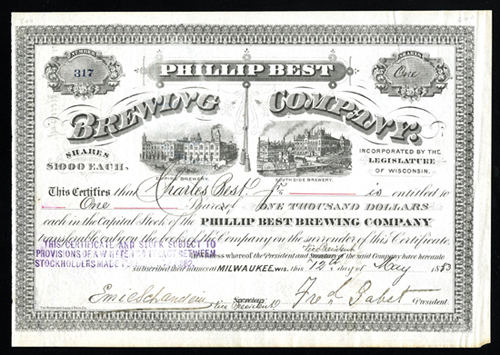 NUMBER
317
SHARES
One
PHILLIP BEST
BREWING COMPANY.
SHARES
$1000 EACH.
EMPIRE BREWERY.
SOUTH SIDE BREWERY.
INCORPORATED BY THE
LEGISLATURE
OF WISCONSIN.
This Certifies that Charles Best Jr. is entitled to
One Shares of ONE THOUSAND DOLLARS
each in the Capital Stock of the PHILLIP BEST BREWING COMPANY
transferable only on the books of the Company on the surrender of this Certificate.
THIS CERTIFICATE AND STOCK SUBJECT TO
PROVISIONS OF A WRITTEN CONTRACT BETWEEN
STOCKHOLDERS MADE
In Witness whereof the President and Secretary of the said Company have hereunto
Vice President
subscribed their names at MILWAUKEE, Wis. this 12th day of May 1883
Emil Schandein
Secretary
Vice President
Fred Pabst
President